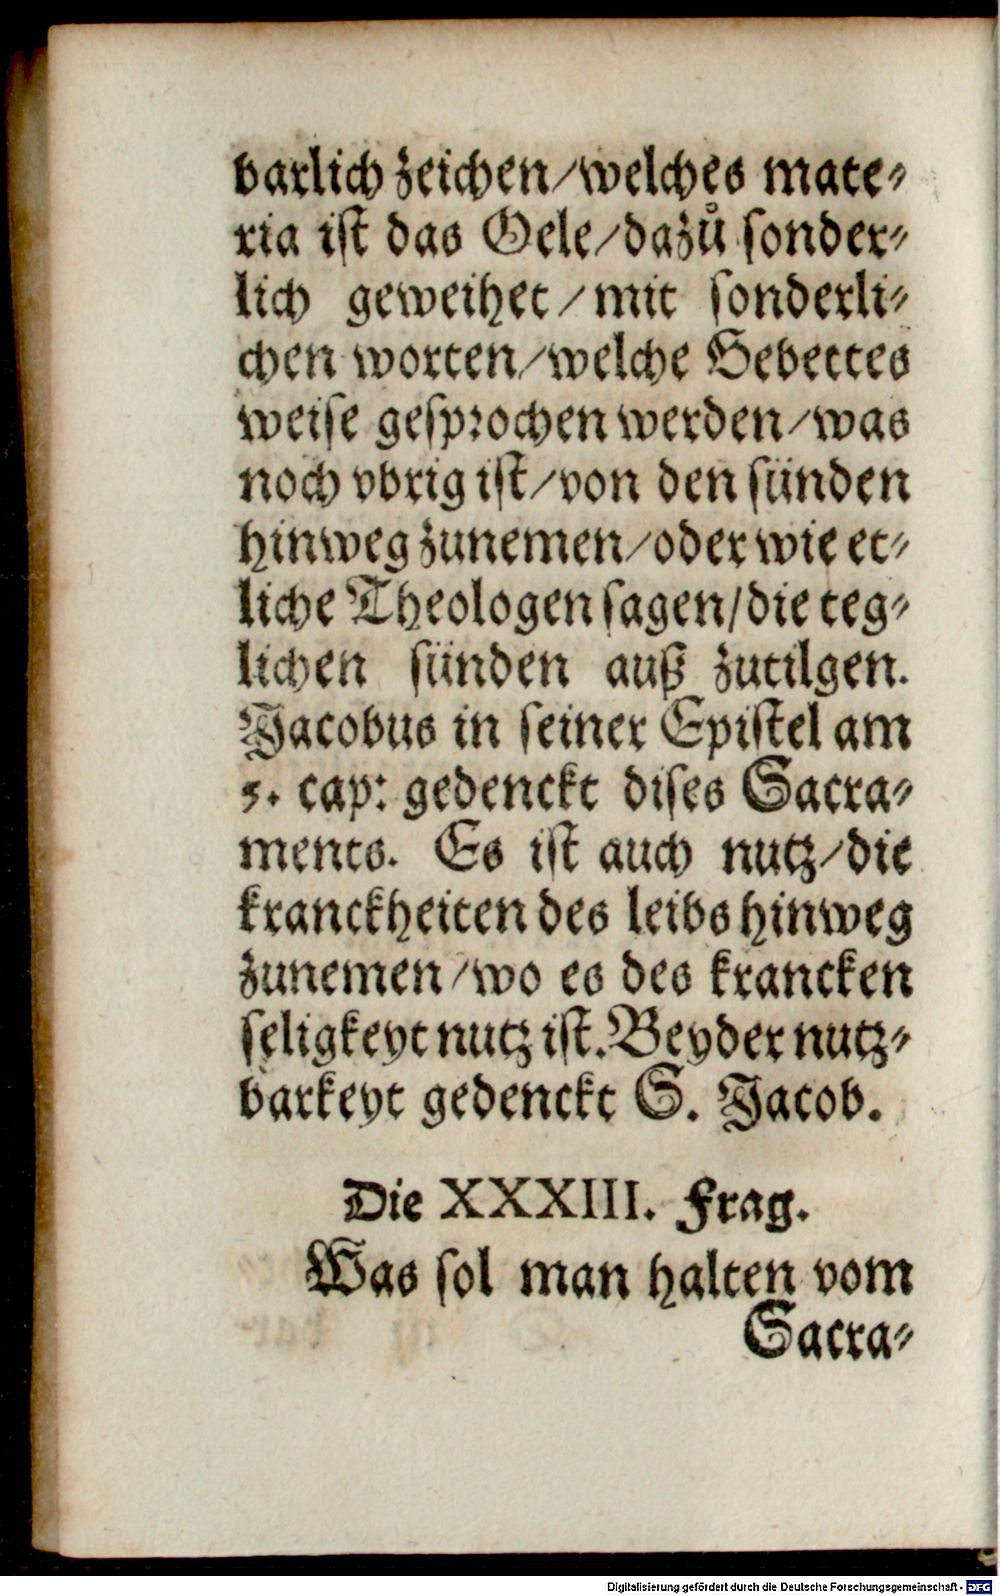 barlich zeichen/welches mate⸗
ria ist das Oele/dazů sonder⸗
lich geweihet/mit sonderli⸗
chen worten/welche Gebettes
weise gesprochen werden/was
noch vbrig ist/von den sünden
hinweg zunemen/oder wie et⸗
liche Theologen sagen/die teg⸗
lichen sünden auß zutilgen.
Jacobus in seiner Epistel am
5. cap: gedenckt dises Sacra⸗
ments. Es ist auch nutz/die
kranckheiten des leibs hinweg
zunemen/wo es des krancken
seligkeyt nutz ist. Beyder nutz⸗
barkeyt gedenckt S. Jacob.
Die XXXIII. Frag.
Was sol man halten vom
Sacra⸗
Digitalisierung gefördert durch die Deutsche Forschungsgemeinschaft - DFG